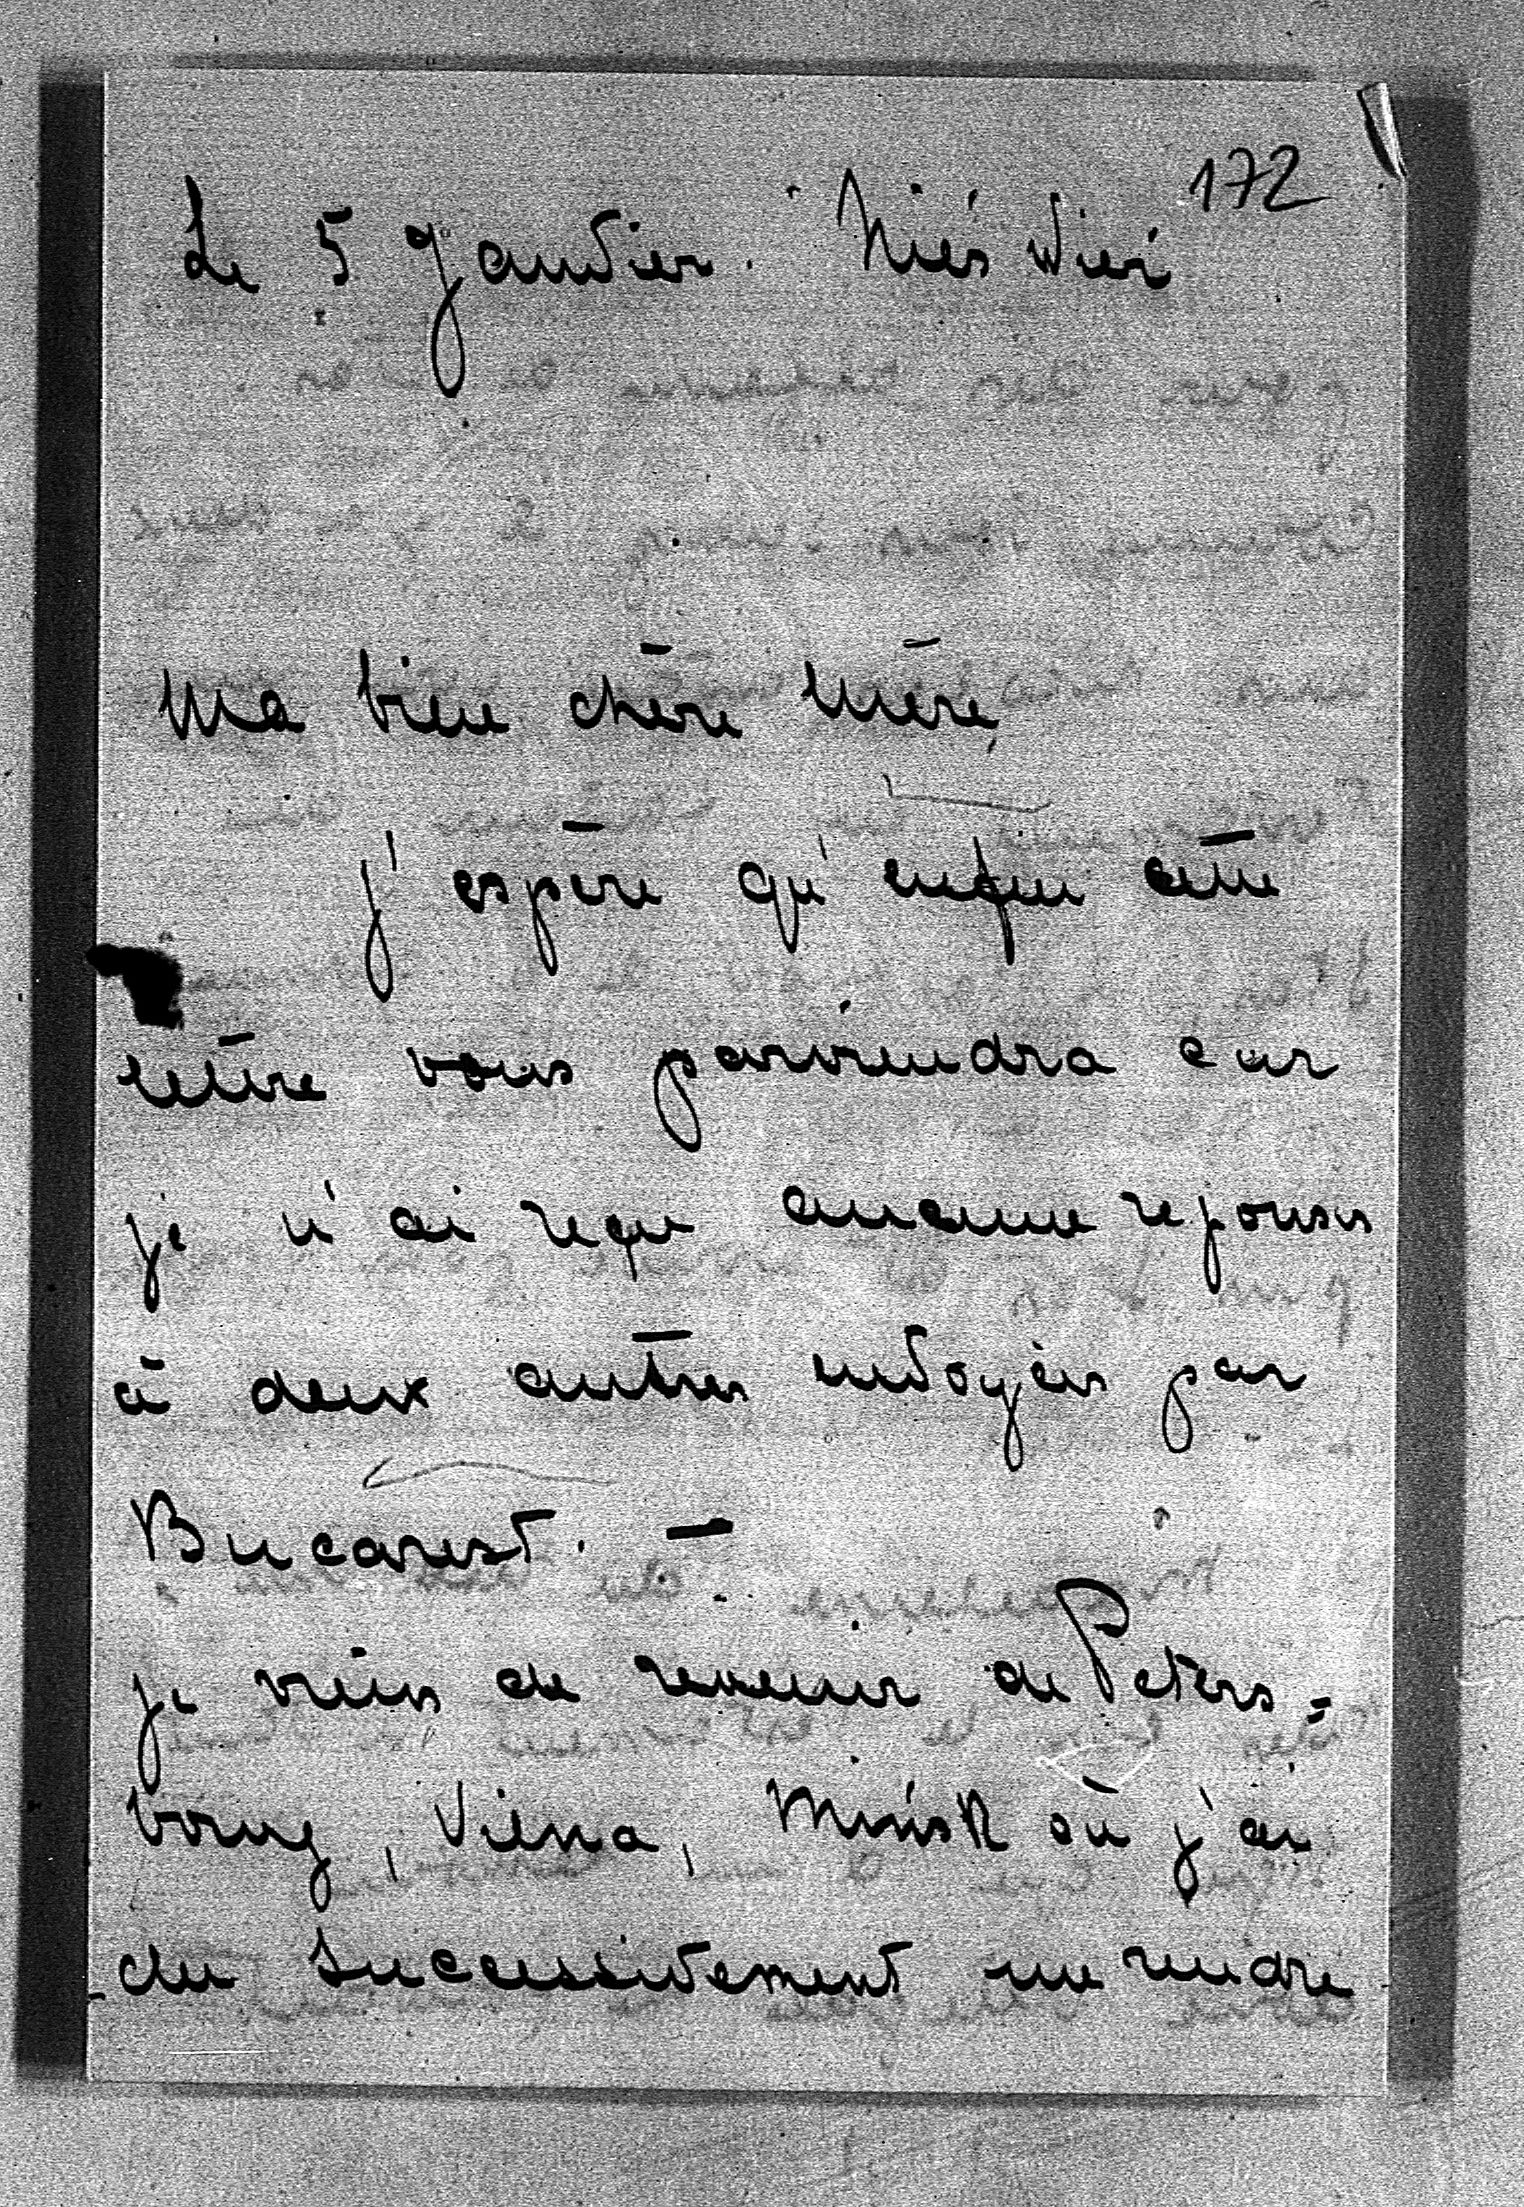 172
Le 5 Janvier. Nieświeź
Ma bien chère Mère,
j'espère qu'enfin cette
lettre vous parviendra car
je n'ai reçu aucune reponses
à deux autres envoyées par
Bucarest. –
je viens de revenir de Peters=
bourg, Vilna, Minsk où j'ai
du successivement me rendre